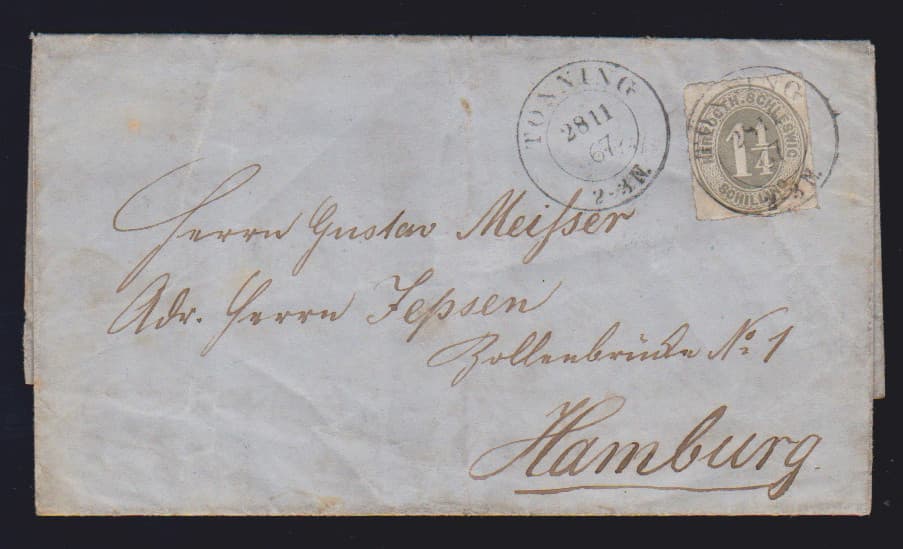 TONNING
28 11
67
2-3 N.
HERZOGTH. SCHLESWIG
1 1/4
SCHILLING
Herrn Gustav Meißer
Adr. Herrn Jepsen
Zollenbrücke No. 1
Hamburg.